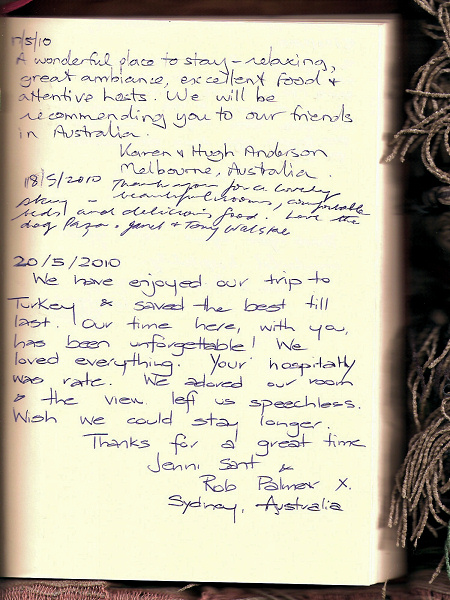 17/5/10
A wonderful place to stay – relaxing,
great ambiance, excellent food &
attentive hosts. We will be
recommending you to our friends
in Australia.
Karen & Hugh Anderson
Melbourne, Australia.
18/5/2010 Thank you for a lovely
stay – beautiful rooms, comfortable
beds and delicious food. Love the
dog . Janet & Tony
20/5/2010
We have enjoyed our trip to
Turkey & saved the best till
last. Our time here, with you,
has been unforgettable! We
loved everything. Your hospitality
was rate. We adored our room
& the view left us speechless.
Wish we could stay longer.
Thanks for a great time
Jenni Sant &
Rob Palmer X.
Sydney, Australia